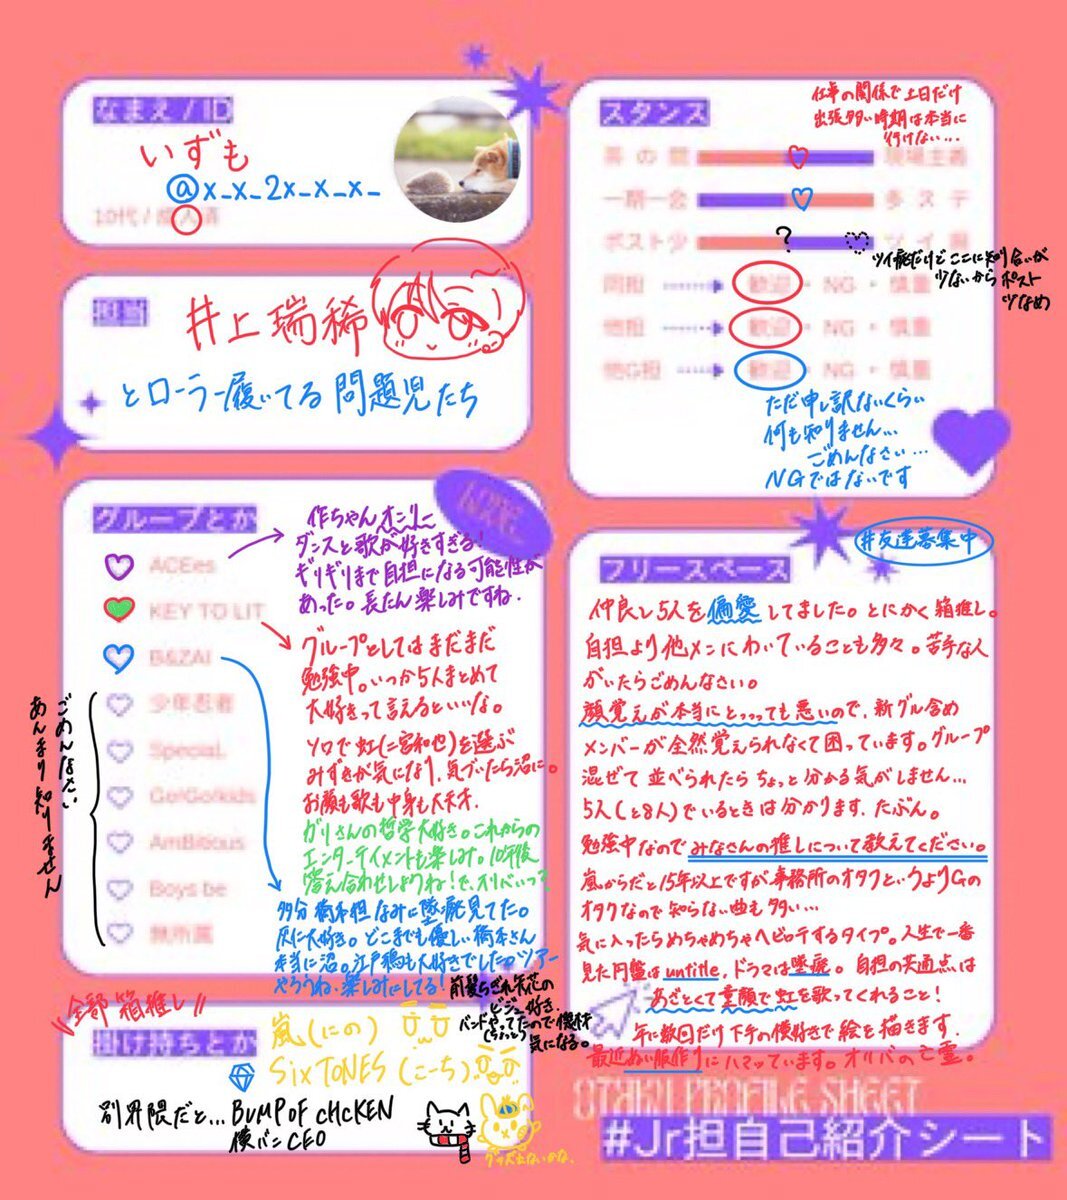 なまえ / ID
いずも
@x_x_2x_x_x_
10代 / 成人済
担当
井上瑞稀
とローラー履いてる問題児たち
スタンス
仕事の関係で土日だけ
出張多い時期は本当に
行けない…
茶の間 現場主義
一期一会 多ステ
ポスト少 ? ツイ廃
ツイ廃だけどここに知り合いが
少ないからポスト
少なめ
同担 歓迎・NG・慎重
他担 歓迎・NG・慎重
他G担 歓迎・NG・慎重
ただ申し訳ないくらい
何も知りません…
ごめんなさい…
NGではないです
グループとか
LOVE
ACEes
KEY TO LIT
B&ZAI
少年忍者
SpeciaL
Go!Go!kids
AmBitious
Boys be
無所属
ごめんなさい
あんまり知りません
作ちゃんオンリー
ダンスと歌が好きすぎる!
ギリギリまで自担になる可能性が
あった。長たん楽しみですね.
グループとしてはまだまだ
勉強中。いつか5人まとめて
大好きって言えるといいな。
ソロで虹(二宮和也)を選ぶ
みずきが気になり、気づいたら沼に。
お顔も歌も中身も大天才.
ガリさんの哲学大好き。これからの
エンターテイメントも楽しみ。10年後
答え合わせしようね!で、オリベいって
多分橋本担なみに墜落見てた。
仄に大好き。どこまでも優しい橋本さん
本当に沼。江戸鴉も大好きでした。ツアー
やろうね、楽しみにしてる!
前髪ちぎれ矢花の
ビジュ好き.
バンドやってたので機材
(ちょっと)気になる。
全部箱推し!!
掛け持ちとか
嵐(にの)
SixTONES(こーち)
別界隈だと… BUMP OF CHCKEN
僕バン CEO
グッズ出ないかな、
#友達募集中
フリースペース
仲良し5人を偏愛してました。とにかく箱推し。
自担より他メンにわいていることも多々。苦手な人
がいたらごめんなさい。
顔覚えが本当にとっっっても悪いので、新グル含め
メンバーが全然覚えられなくて困っています。グループ
混ぜて並べられたらちょっと分かる気がしません…
5人(と8人)でいるときは分かります.たぶん。
勉強中なのでみなさんの推しについて教えてください。
嵐からだと15年以上ですが事務所のオタクというよりGの
オタクなので知らない曲も多い…
気に入ったらめちゃめちゃヘビロテするタイプ。人生で一番
見た円盤はuntitle,ドラマは墜落。自担の共通点は
あざとくて童顔で虹を歌ってくれること!
年に数回だけ下手の横好きで絵を描きます.
最近ぬい服作りにハマっています。オリバの亡霊。
OTAKU PROFILE SHEET
#Jr担自己紹介シート